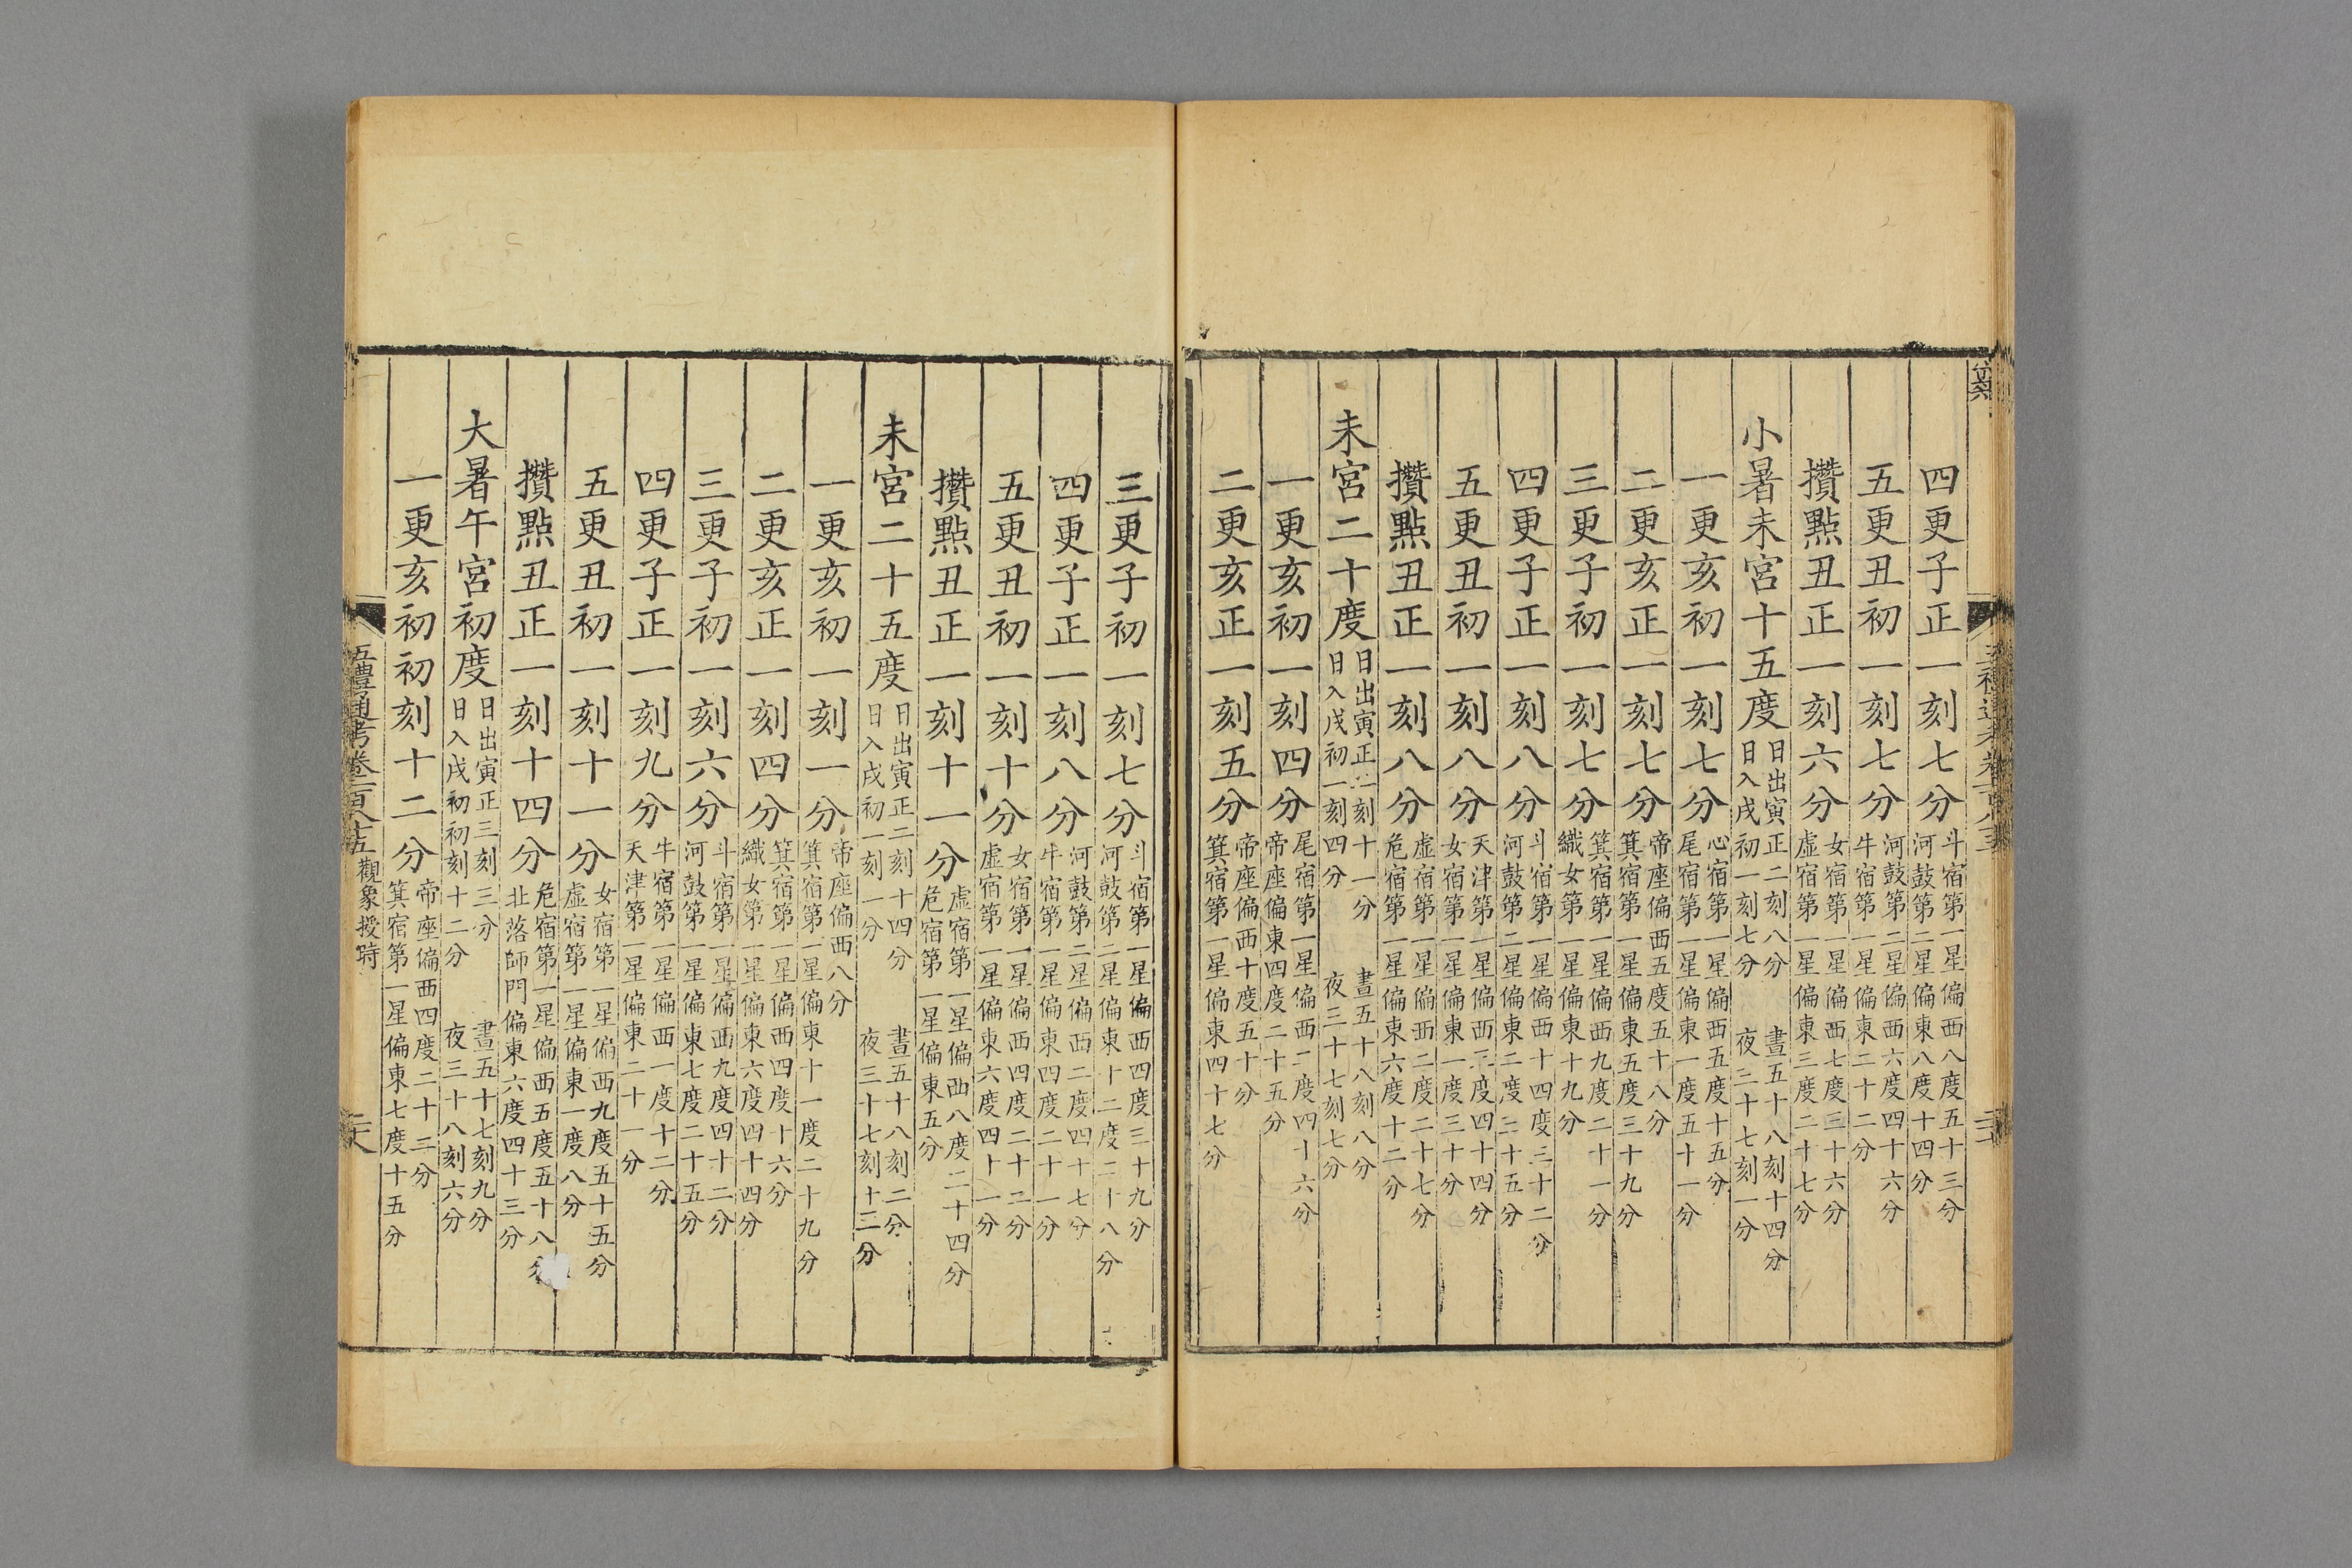 四更子正一刻七分斗宿第一星偏西八度五十三分河鼓第二星偏東八度十四分
五更丑初一刻七分河鼓第二星偏西六度四十六分牛宿第一星偏東二十二分
攢點丑正一刻六分女宿第一星偏西七度三十六分虛宿第一星偏東三度二十七分
小暑未宮十五度日出寅正二刻八分日入戌初一刻七分晝五十八刻十四分夜三十七刻一分
一更亥初一刻七分心宿第一星偏西五度十五分尾宿第一星偏東一度五十一分
二更亥正一刻七分帝座偏西五度五十八分箕宿第一星偏東五度三十九分
三更子初一刻七分箕宿第一星偏西九度二十一分織女第一星偏東十九分
四更子正一刻八分斗宿第一星偏西十四度三十二分河鼓第二星偏東二度三十五分
五更丑初一刻八分天津第一星偏西三度四十四分女宿第一星偏東一度三十分
攢點丑正一刻八分虛宿第一星偏西二度二十七分危宿第一星偏東六度十二分
未宮二十度日出寅正二刻十一分日入戌初一刻四分晝五十八刻八分夜三十七刻七分
一更亥初一刻四分尾宿第一星偏西二度四十六分帝座偏東四度二十五分
二更亥正一刻五分帝座偏西十度五十分箕宿第一星偏東四十七分
三更子初一刻七分斗宿第一星偏西四度三十九分河鼓第二星偏東十二度二十八分
四更子正一刻八分河鼓第二星偏西二度四十七分牛宿第一星偏東四度二十一分
五更丑初一刻十分女宿第一星偏西四度二十二分虛宿第一星偏東六度四十一分
攢點丑正一刻十一分虛宿第一星偏西八度二十四分危宿第一星偏東五分
未宮二十五度日出寅正二刻十四分日入戌初一刻一分晝五十八刻二分夜三十七刻十三分
一更亥初一刻一分帝座偏西八分箕宿第一星偏東十一度二十九分
二更亥正一刻四分箕宿第一星偏西四度十六分織女第一星偏東六度四十四分
三更子初一刻六分斗宿第一星偏西九度四十二分河鼓第一星偏東七度二十五分
四更子正一刻九分牛宿第一星偏西一度十二分天津第一星偏東二十一分
五更丑初一刻十一分女宿第一星偏西九度五十五分虛宿第一星偏東一度八分
攢點丑正一刻十四分危宿第一星偏西五度五十八分北落師門偏東六度四十三分
大暑午宮初度日出寅正三刻三分日入戌初初刻十二分晝五十七刻九分夜三十八刻六分
一更亥初初刻十二分帝座偏西四度二十二分箕宿第一星偏東七度十五分
五禮通考卷一百八十五 觀象授時